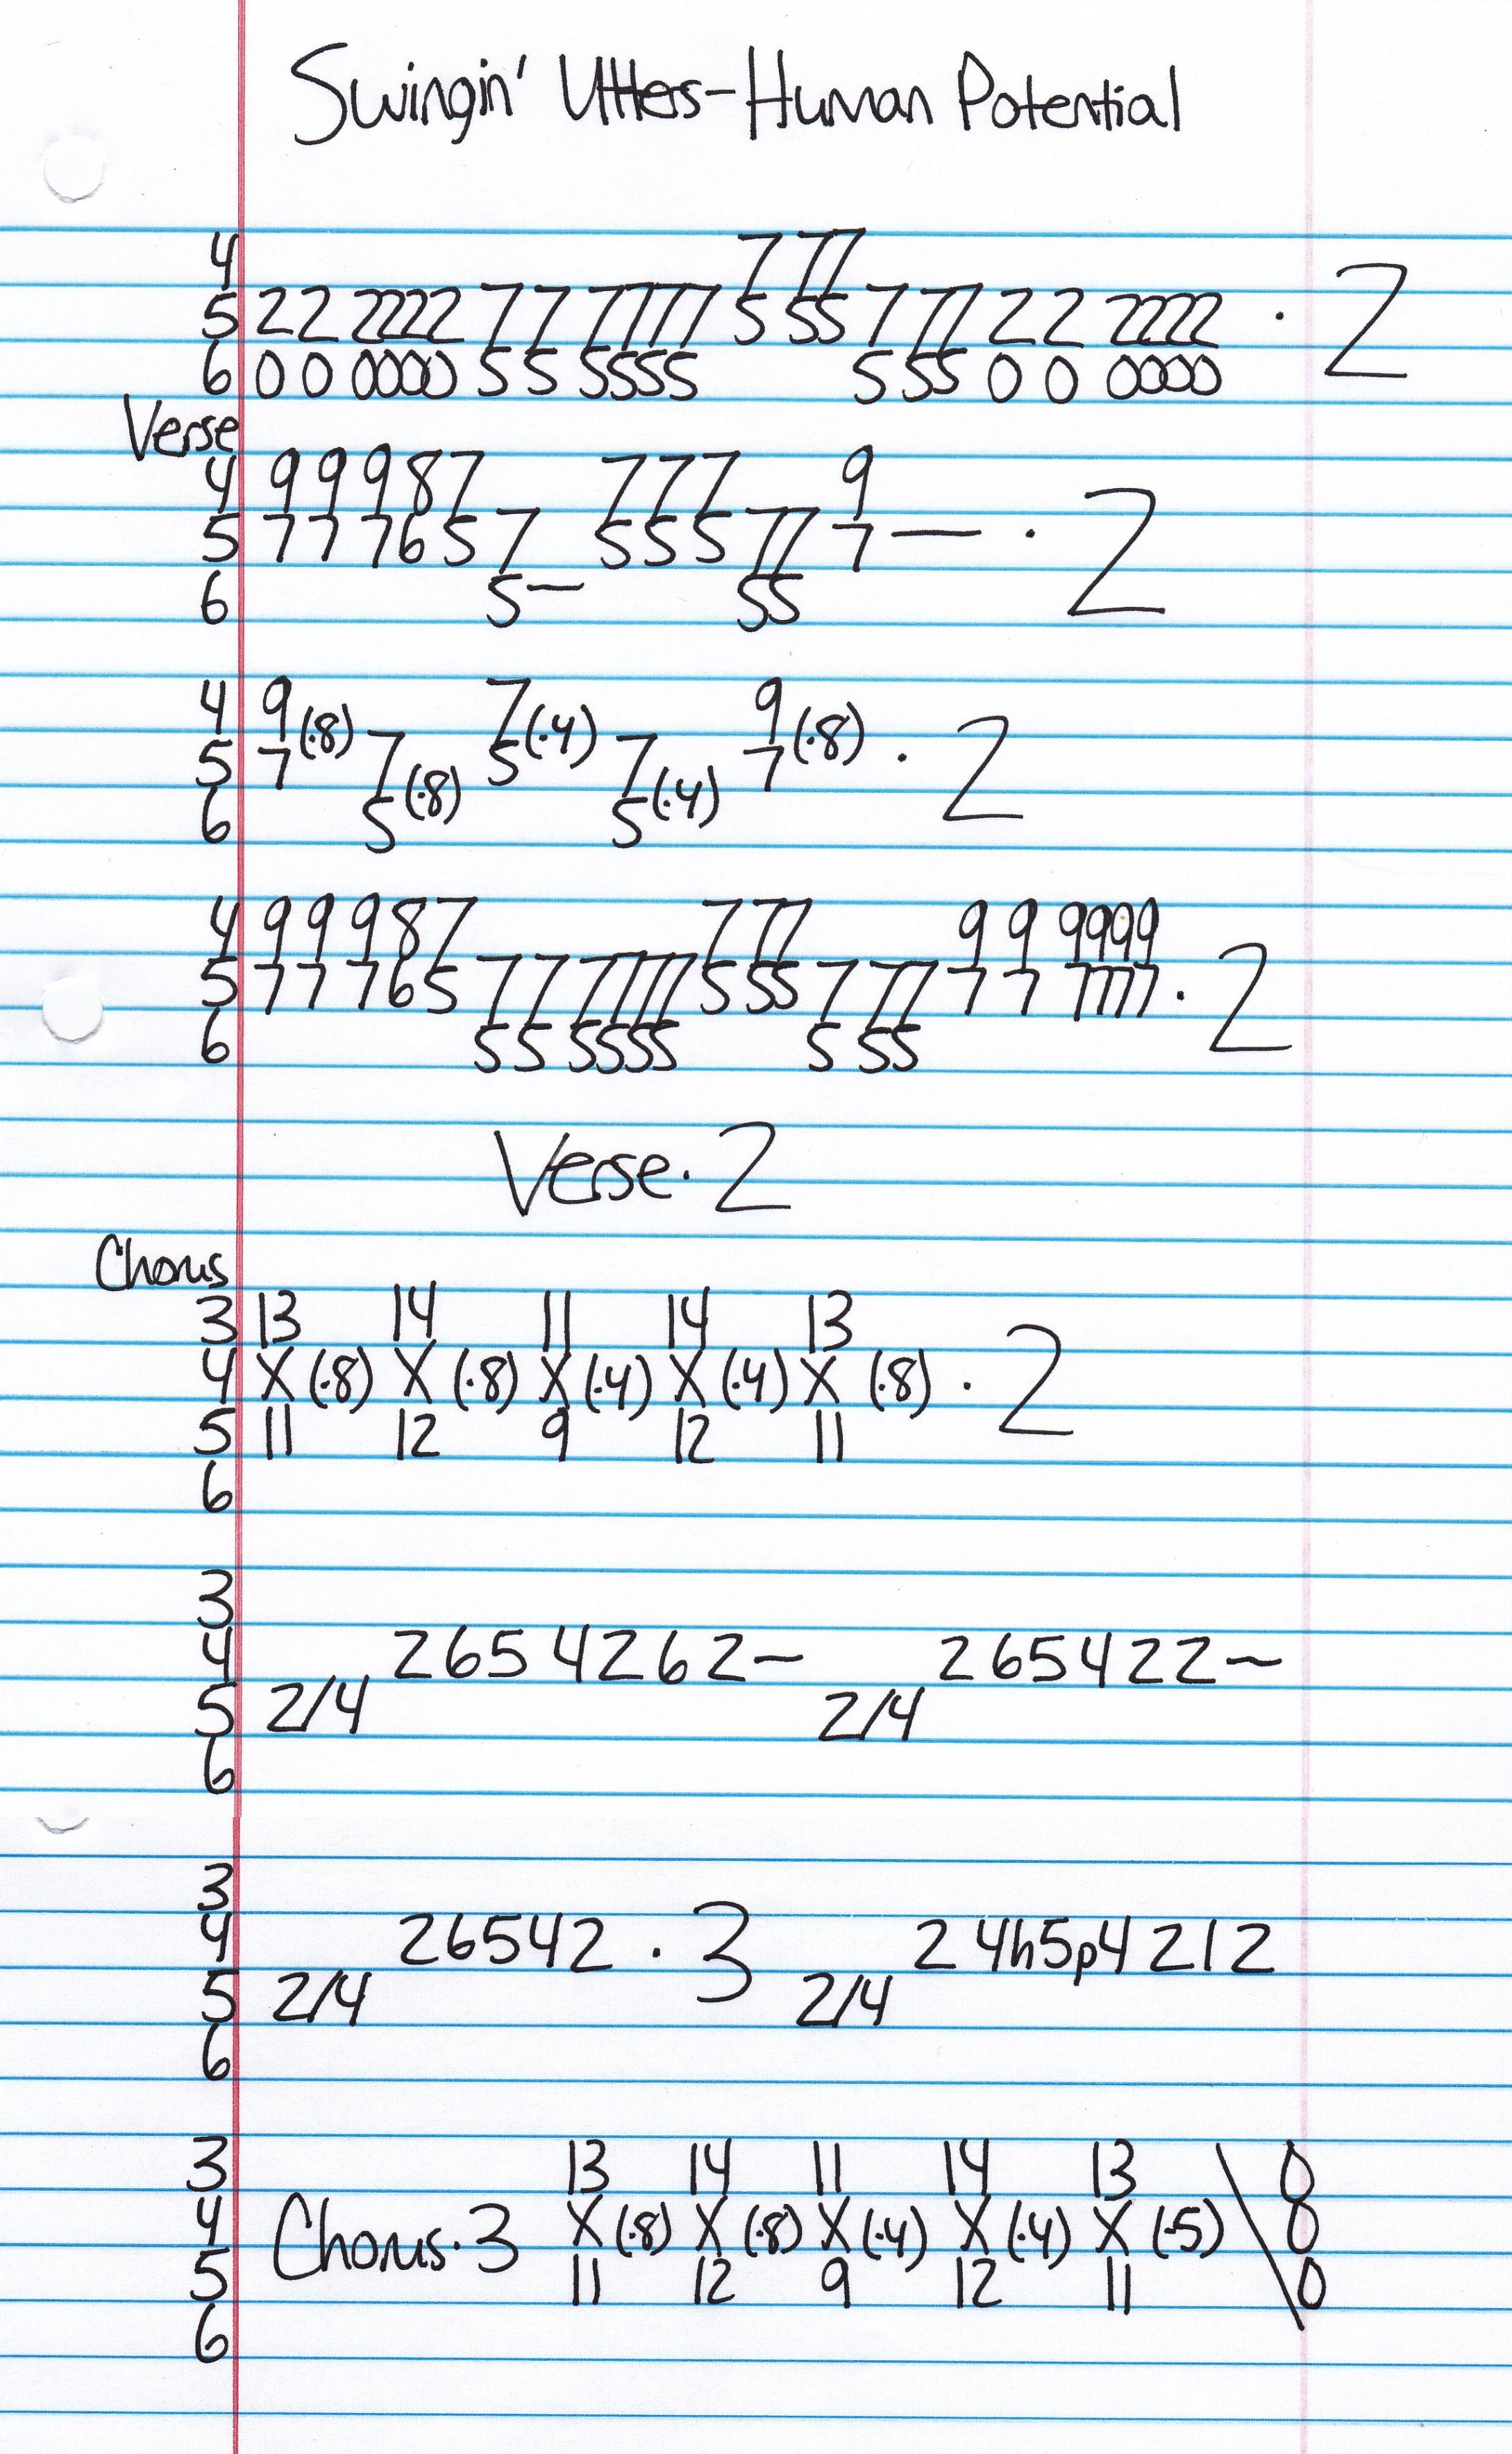 Swingin' Utters-Human Potential
4 7 77
5 22 2222 77 7777 5 55 7 77 22 2222 · 2
6 00 0000 55 5555 5 55 00 0000
Verse
4 99987 777 9
5 777657 555 77 7— · 2
6 5— 55
4 9(·8) 7(·4) 9(·8)
5 7 7 5 7 7 · 2
6 5(·8) 5(·4)
4 99987 7 77 99 9999
5 77765 77 7777 5 55 7 77 77 7777 · 2
6 55 5555 5 55
Verse·2
Chorus
3 13 14 11 14 13
4 X (·8) X (·8) X (·4) X (·4) X (·8) · 2
5 11 12 9 12 11
6
3
4 2654262— 265422—
5 2/4 2/4
6
3
4 26542 · 3 2 4h5p4 212
5 2/4 2/4
6
3 13 14 11 14 13 \ 0
4 Chorus·3 X (·8) X (·8) X (·4) X (·4) X (·5) 0
5 11 12 9 12 11 0
6